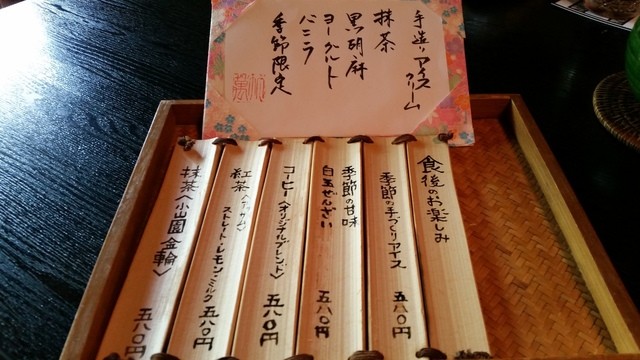 手造りアイスクリーム
抹茶
黒胡麻
ヨーグルト
バニラ
季節限定
食後のお楽しみ
季節の手づくりアイス 五八〇円
季節の甘味
白玉ぜんざい 五八〇円
コーヒー〈オリジナルブレンド〉 五八〇円
紅茶〈アッサム〉
ストレート・レモン・ミルク 五八〇円
抹茶〈小山園 金輪〉 五八〇円